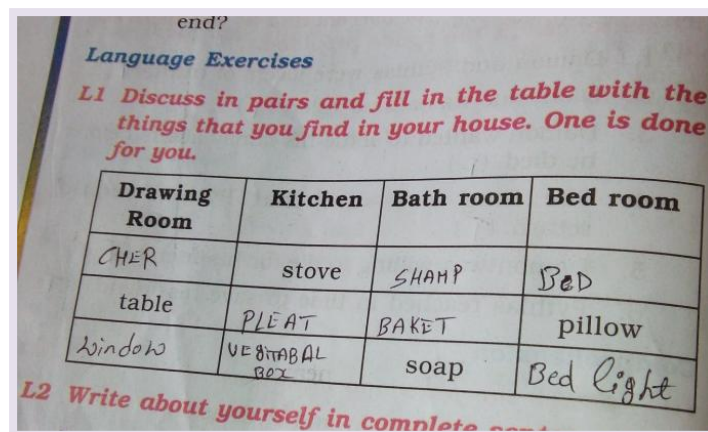 end?
Language Exercises
L1 Discuss in pairs and fill in the table with the
things that you find in your house. One is done
for you.
Drawing Room Kitchen Bath room Bed room
CHER stove SHAMP BeD
table PLEAT BAKET pillow
window VEGITABAL BOX soap Bed light
L2 Write about yourself in complete